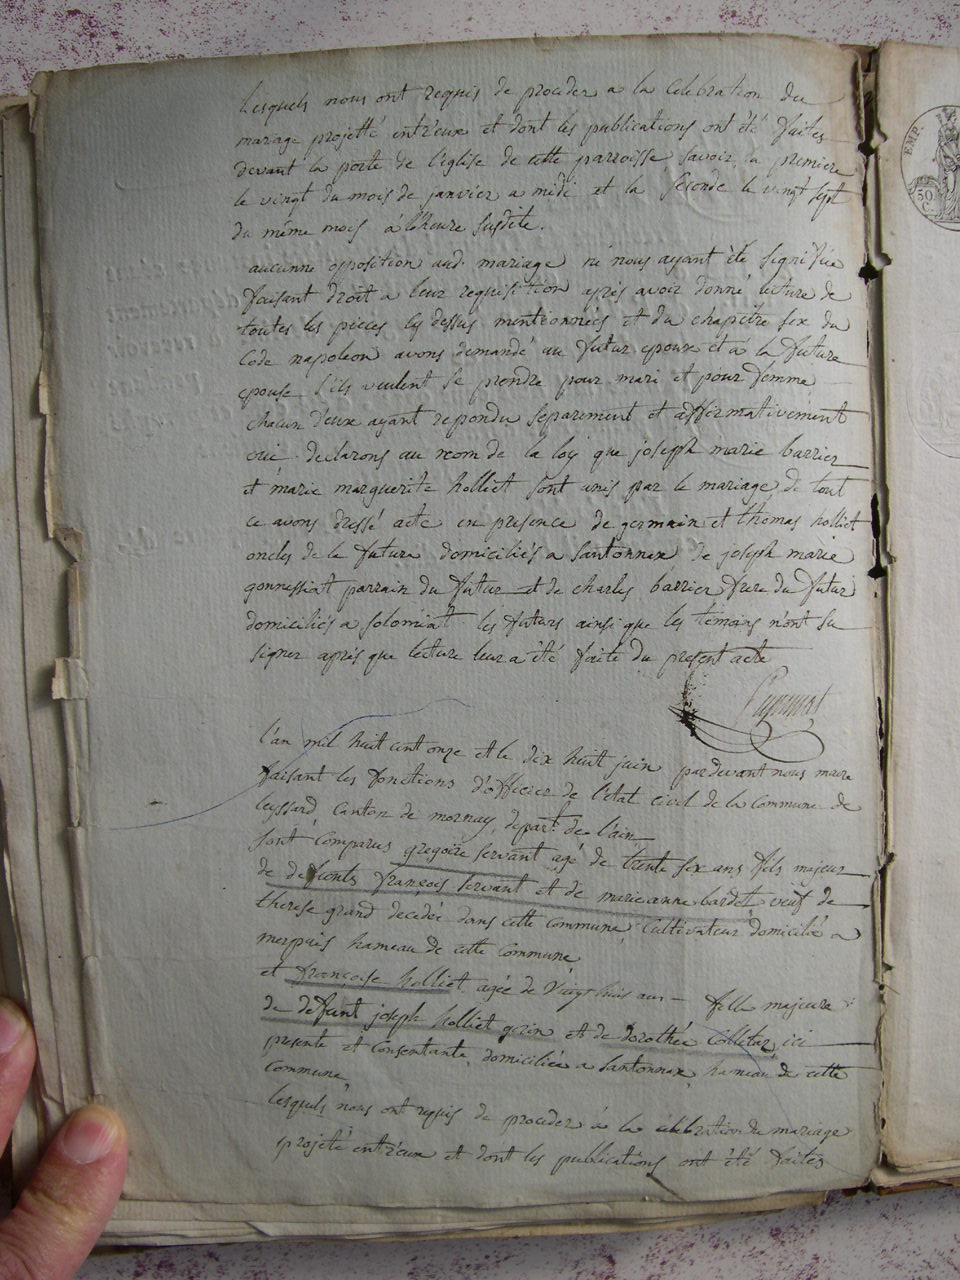 Lesquels nous ont requis de proceder a la Celebration du
mariage projetté entr'eux et dont les publications ont été faites
devant la porte de l'église de cette parroisse savoir la premiere
le vingt du mois de janvier a midi et la seconde le vingt sept
du même mois à l'heure susdite.
aucunne opposition aud. mariage ni nous ayant été signifiée
faisant droit a leur requisition après avoir donné lecture de
toutes les pieces cy dessus mentionnées et du chapitre six du
Code napoleon avons demandé au futur epoux et à la future
epouse s'ils veulent se prendre pour mari et pour femme
chacun d'eux ayant repondu séparement et affirmativement
oui declarons au nom de la loy que joseph marie barrier
et marie marguerite holliet sont unis par le mariage de tout
ce avons dressé acte en presence de germain et thomas holliet
oncles de la future domiciliés a santonnax de joseph marie
gonnessiat parrain du futur et de charles barrier frere du futur
domiciliés a solomiat les futurs ainsi que les témoins n'ont su
signer après que lecture leur a été faite du present acte
l'an mil huit cent onze et le dix huit juin pardevant nous maire
faisant les fonctions d'officier de l'état civil de la commune de
leyssard, canton de mornay, depart.t de l'ain
sont comparus gregoire servant agé de trente six ans fils majeur
de defunts françois servant et de marie anne bardet veuf de
therese grand decédée dans cette commune cultivateur domicilié a
merpuis hameau de cette commune
et françoise holliet agée de vingt huit ans fille majeure
de defunt joseph holliet gerin et de dorothée colletaz ici
presente et consentante domiciliée a santonnax hameau de cette
commune
lesquels nous ont requis de proceder à la célébration du mariage
projeté entr'eux et dont les publications ont été faites
EMP.
50
C.